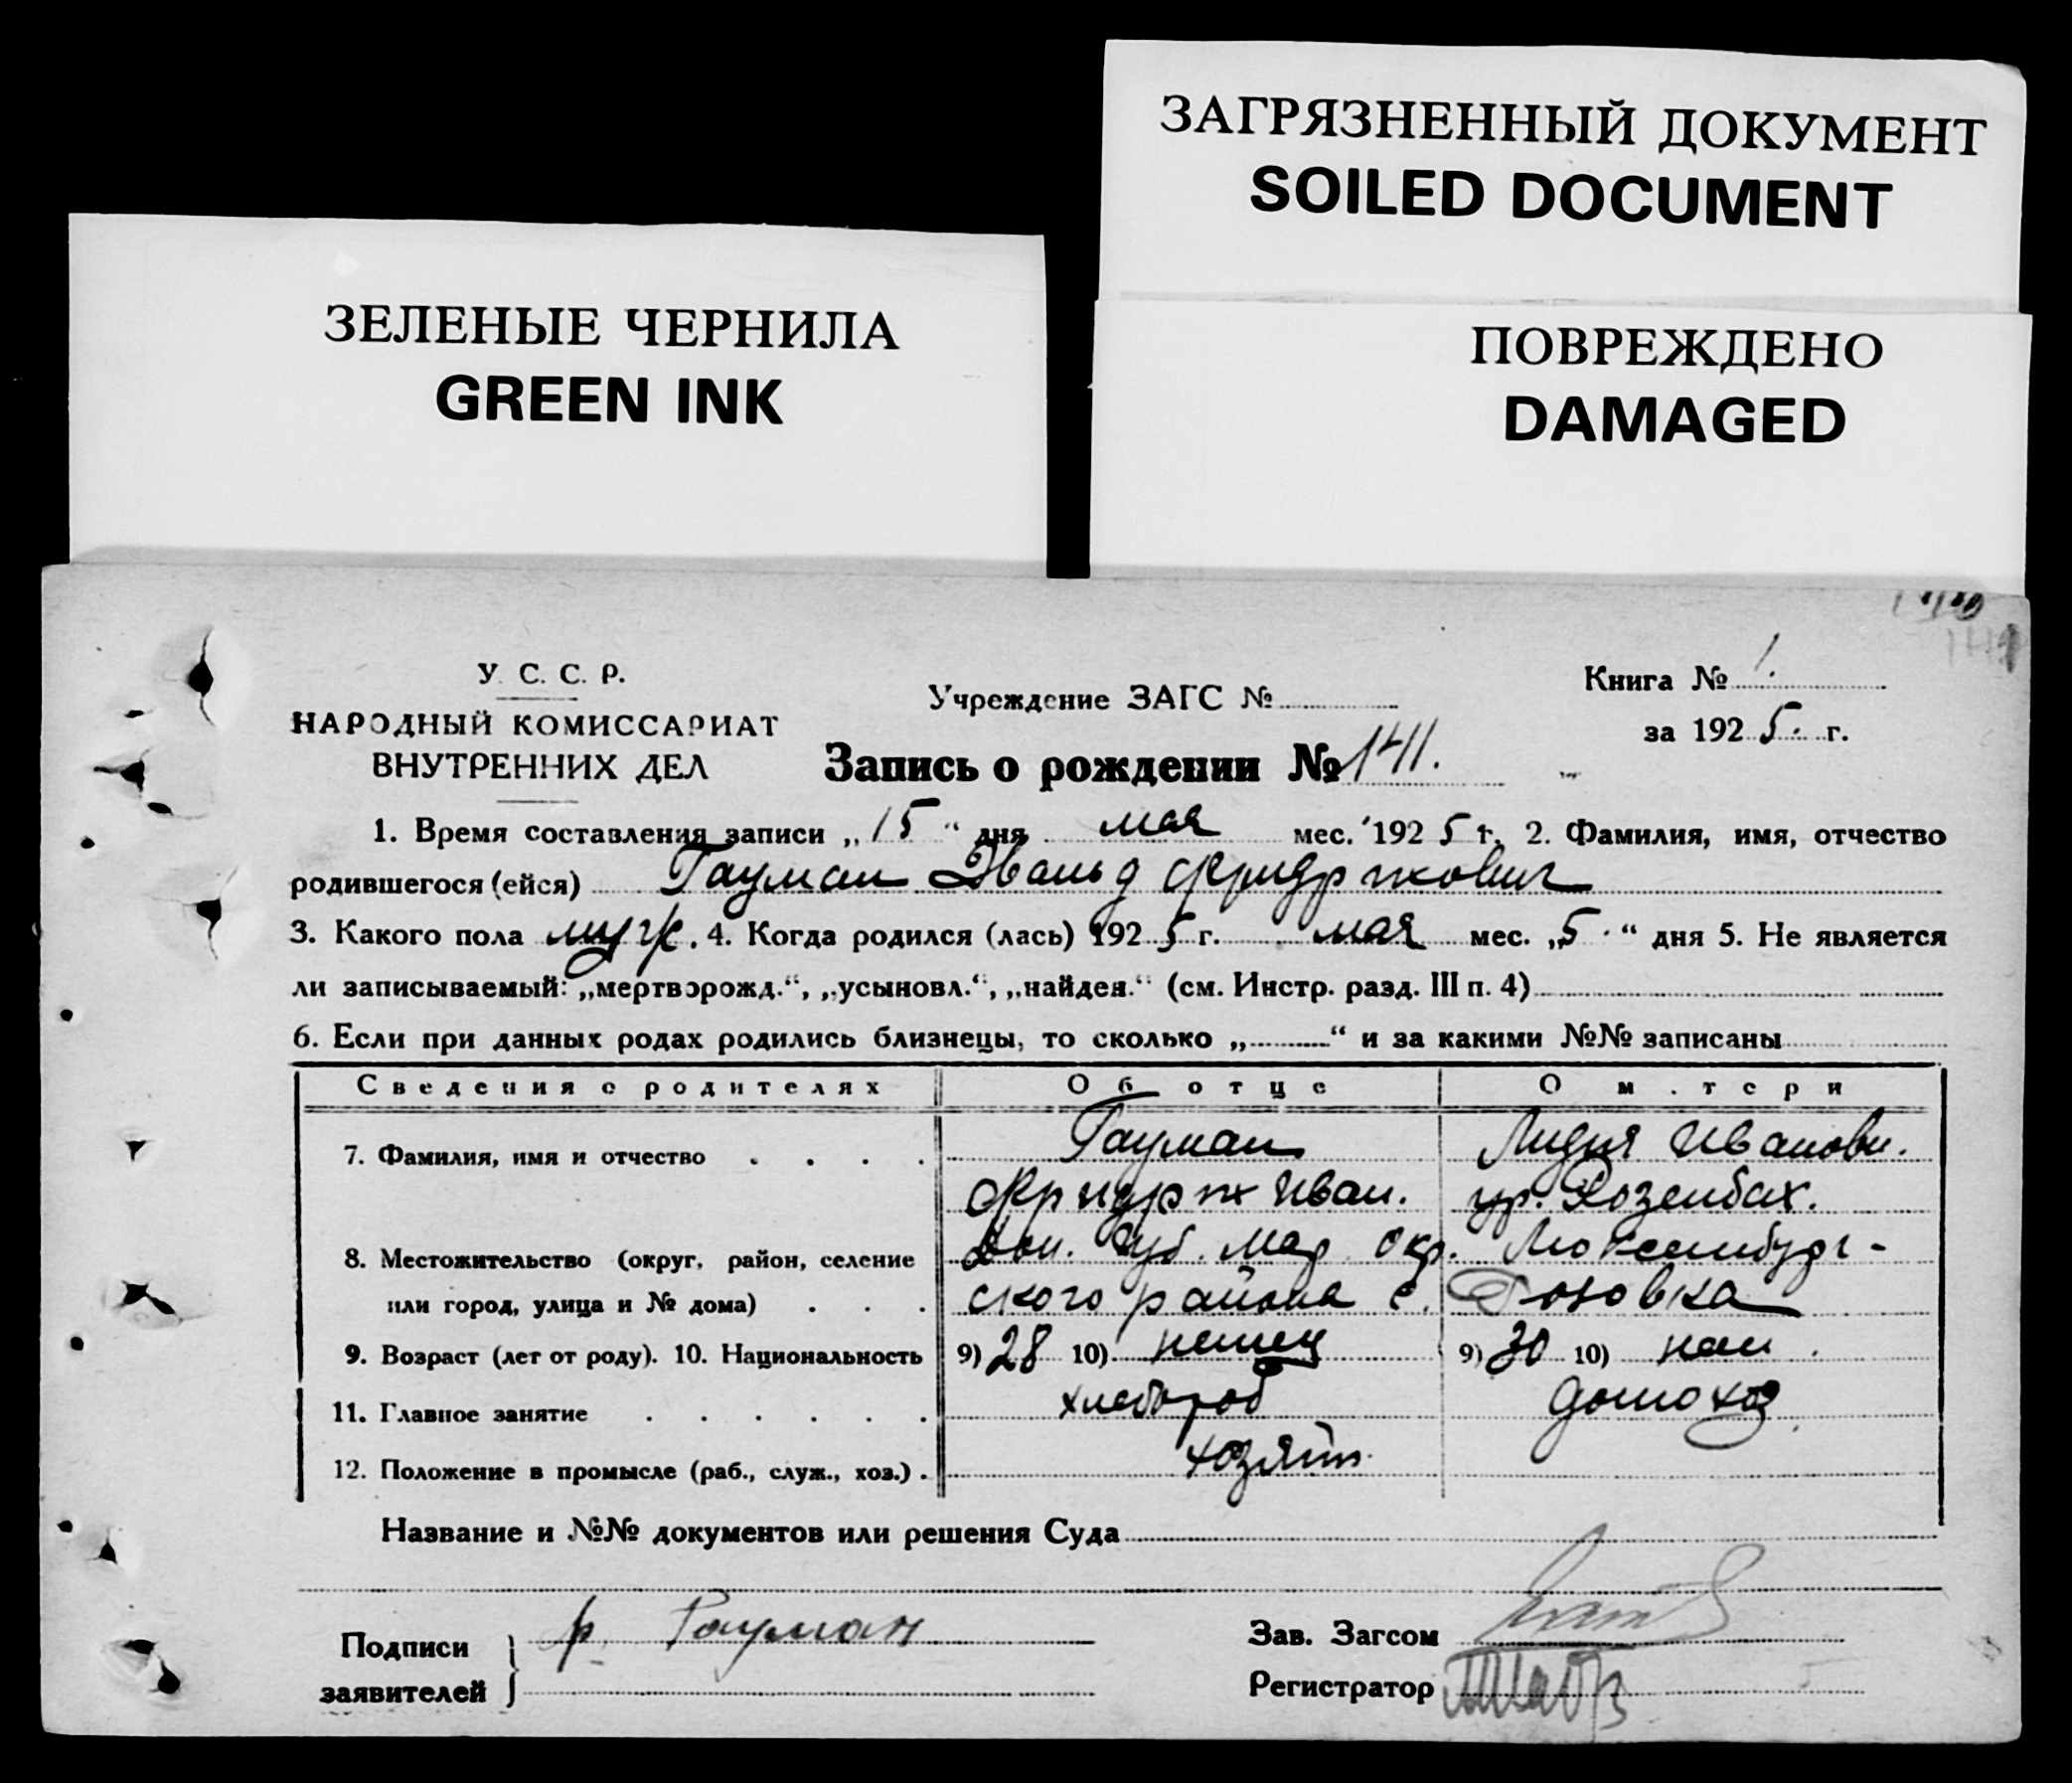 ЗАГРЯЗНЕННЫЙ ДОКУМЕНТ
SOILED DOCUMENT
ЗЕЛЕНЫЕ ЧЕРНИЛА
GREEN INK
ПОВРЕЖДЕНО
DAMAGED
У. С. С. Р.
НАРОДНЫЙ КОМИССАРИАТ
ВНУТРЕННИХ ДЕЛ
Учреждение ЗАГС №
Книга № 1.
за 1925. г.
Запись о рождении № 141.
1. Время составления записи „15“ дня мая мес. 1925 г. 2. Фамилия, имя, отчество
родившегося (ейся) Гауман Эвальд Фридрихович
3. Какого пола муж. 4. Когда родился (лась) 1925 г. мая мес. „5“ дня 5. Не является
ли записываемый: „мертворожд.“, „усыновл.“, „найден.“ (см. Инстр. разд. III п. 4)
6. Если при данных родах родились близнецы, то сколько „ “ и за какими №№ записаны
Сведения о родителях Об отце О м.тери
7. Фамилия, имя и отчество . . . . Гауман Лидия Иванови.
Фридрих Иван. ур. Розенбах.
8. Местожительство (округ, район, селение Дон. Губ. Мар. Окр. Люксембург-
или город, улица и № дома) . . . ского района с. Розовка
9. Возраст (лет от роду). 10. Национальность 9) 28 10) немец 9) 30 10) нем.
11. Главное занятие . . . . . . хлебороб домохоз.
12. Положение в промысле (раб., служ., хоз.) . хозяин
Название и №№ документов или решения Суда
Подписи заявителей Гауман
Зав. Загсом
Регистратор